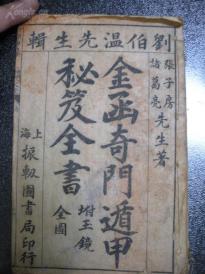 劉伯溫先生輯
張子房
諸葛亮
先生著
金函奇門遁甲
秘笈全書
坿玉鏡
全圖
上海
振軔圖書局印行